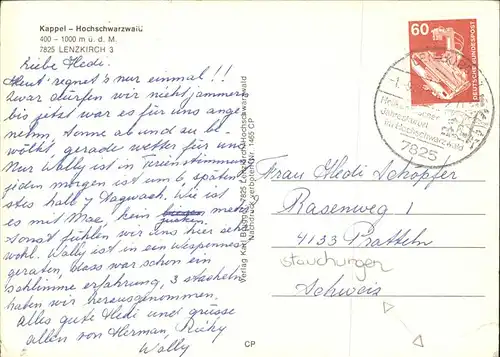 Kappel – Hochschwarzwald
400 – 1000 m ü. d. M.
7825 LENZKIRCH 3
Liebe Hedi.
Heut regnet's nur einmal!!
Zwar dürfen wir nicht jammern
bis jetzt war es für uns ange
nehm, Sonne ab und zu be-
wölkt, gerade wetter für uns
Nur Wally ist in
jeden morgen ist um 6 späten
stes halb 7 Tagwach. Wie ist
es mit Mae, kein mehr
Sonst fühlen wir uns hier sehr
wohl. Wally ist in ein Wespennest
geraten, dass war schon ein
schlimme erfahrung, 3 stacheln
haben wir herausgenommen.
Alles gute Hedi und grüsse
allen von Herman, Ricky
Wally
Verlag Karl 7825 Lenzkirch/Hochschwarzwald
Nachdruck verboten Nr. 1465 CP
CP
60
DEUTSCHE BUNDESPOST
7825
Frau Hedi Schopfer
Rasenweg 1
4133 Pratteln
stauchungen
Schweis